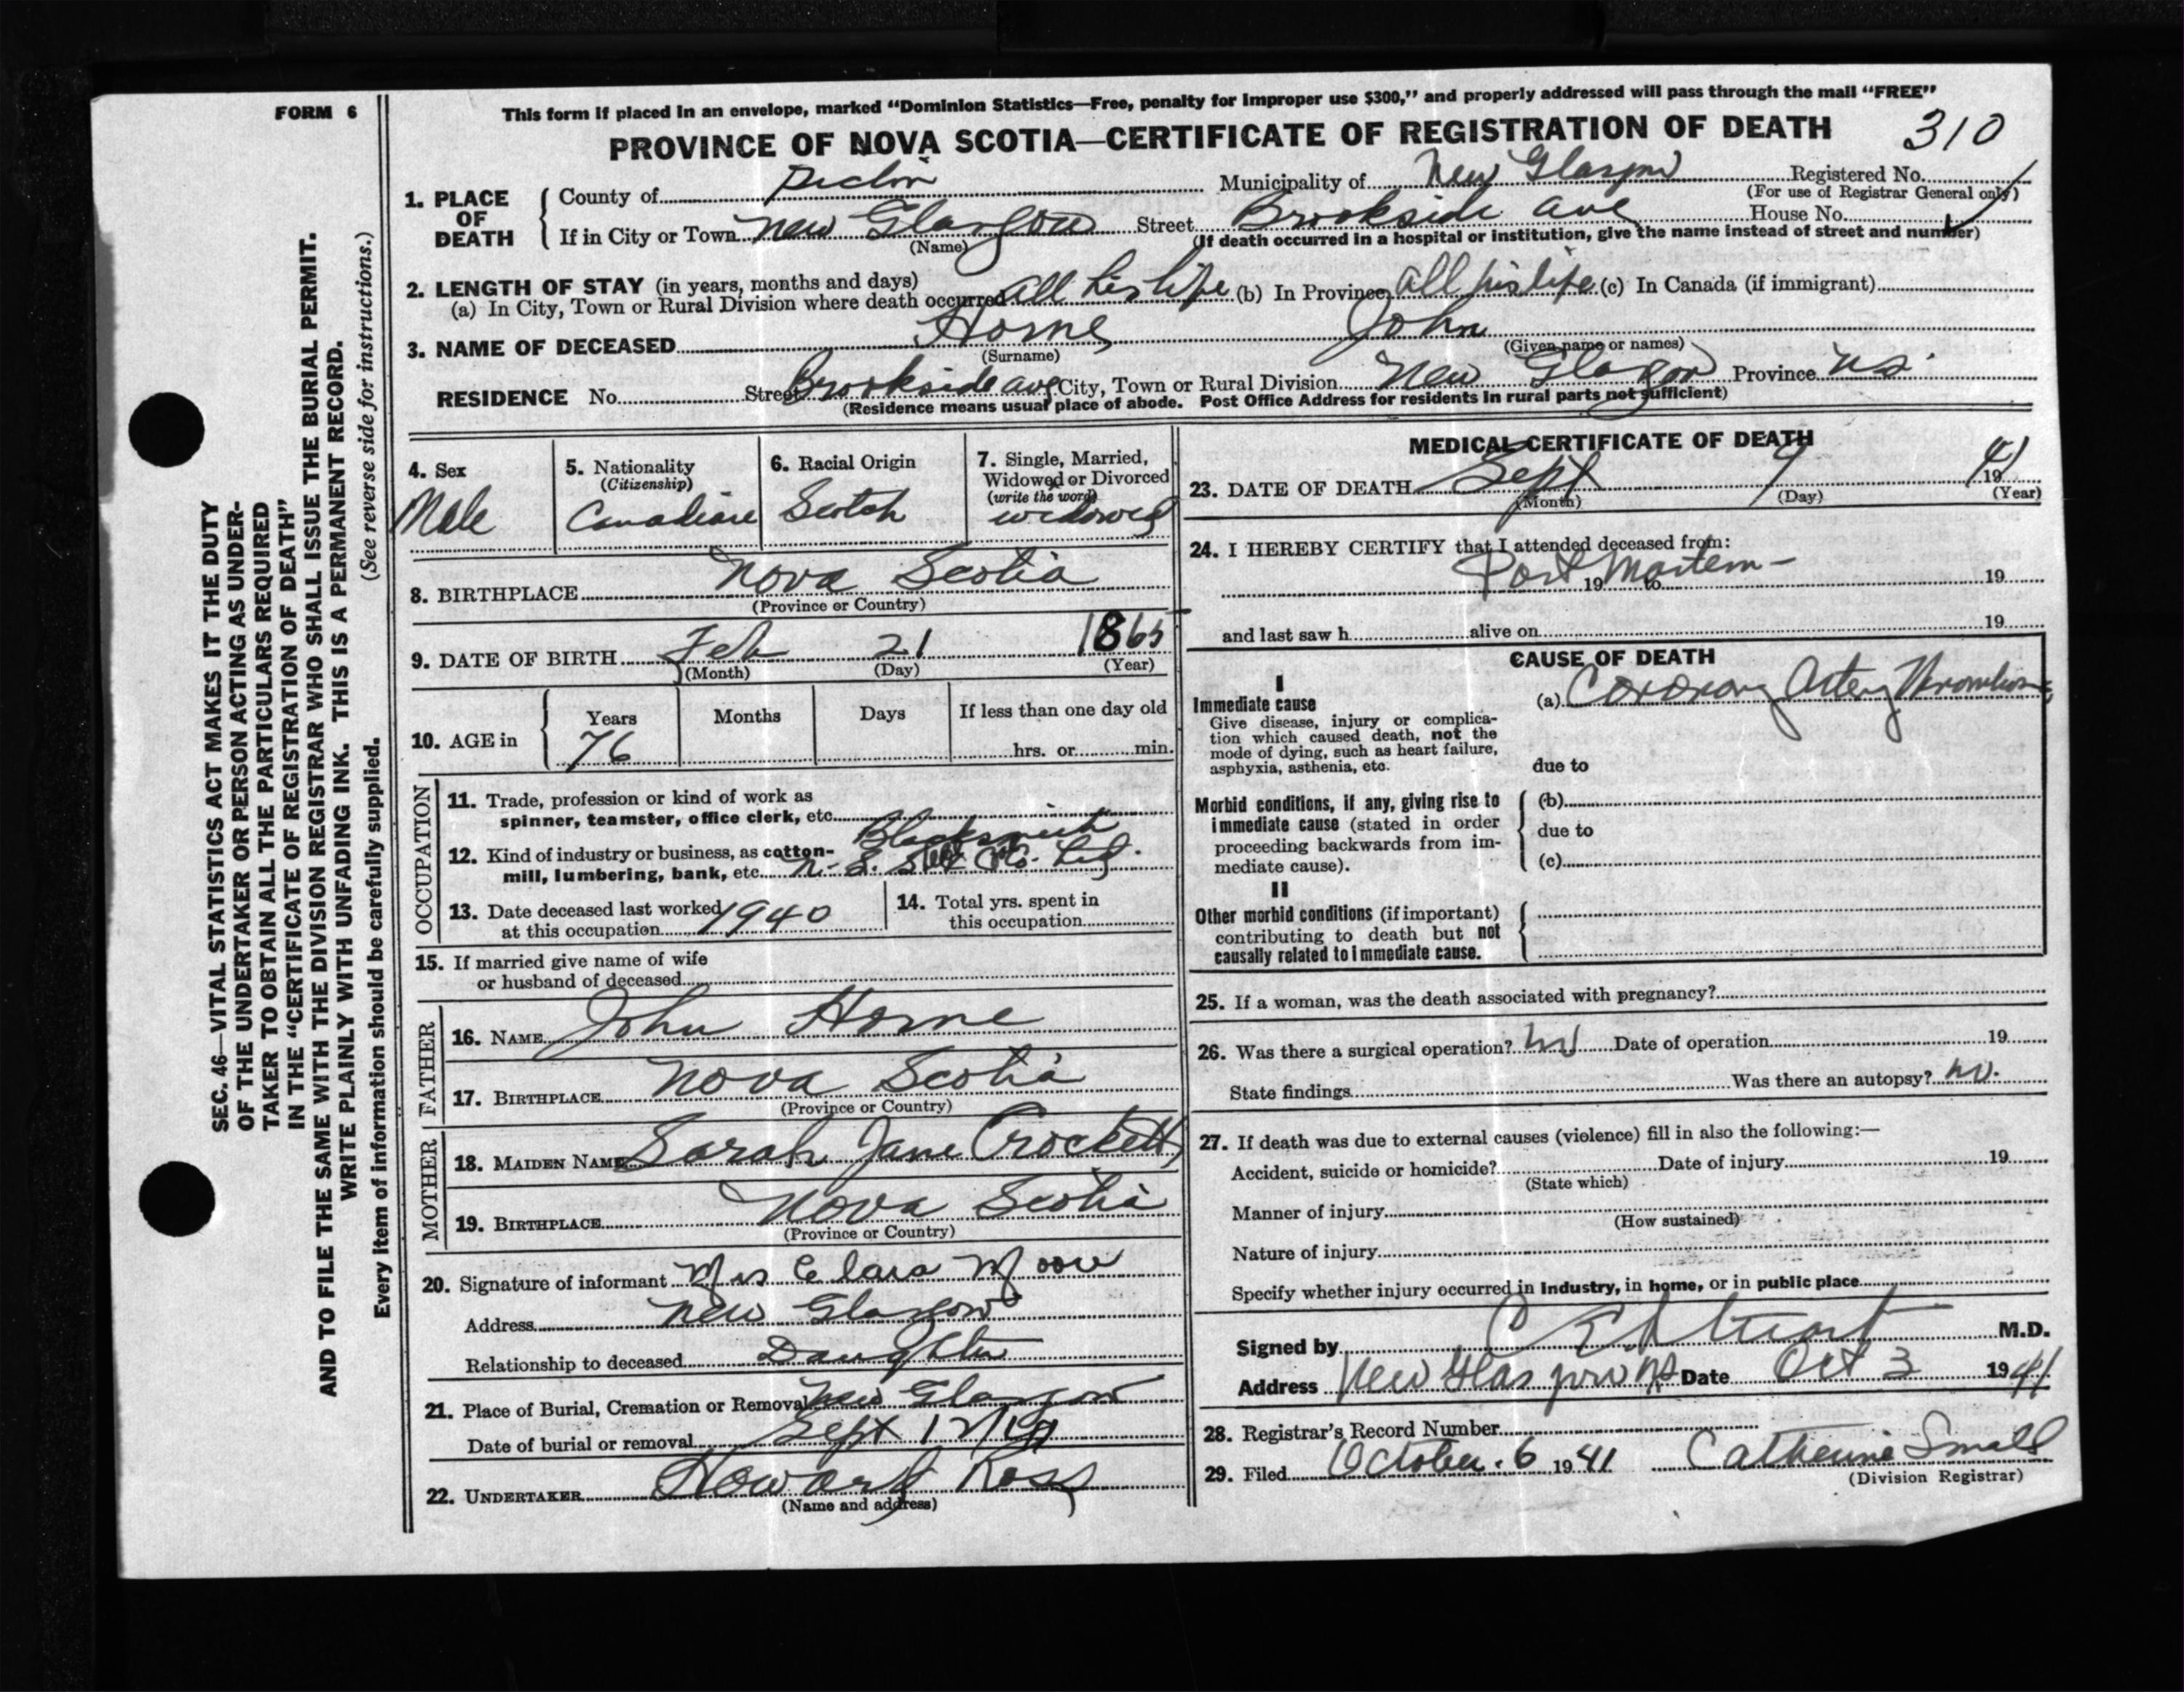 FORM 6
This form if placed in an envelope, marked "Dominion Statistics—Free, penalty for improper use $300," and properly addressed will pass through the mail "FREE"
PROVINCE OF NOVA SCOTIA—CERTIFICATE OF REGISTRATION OF DEATH 310
1. PLACE OF DEATH
County of Pictou Municipality of New Glasgow Registered No.
(For use of Registrar General only)
If in City or Town New Glasgow Street Brookside Ave House No.
(Name) (If death occurred in a hospital or institution, give the name instead of street and number)
2. LENGTH OF STAY (in years, months and days)
(a) In City, Town or Rural Division where death occurred all his life (b) In Province all his life (c) In Canada (if immigrant)
3. NAME OF DECEASED Horne John
(Surname) (Given name or names)
RESIDENCE No. Street Brookside ave City, Town or Rural Division New Glasgow Province N.S.
(Residence means usual place of abode. Post Office Address for residents in rural parts not sufficient)
4. Sex
Male
5. Nationality
(Citizenship)
Canadian
6. Racial Origin
Scotch
7. Single, Married,
Widowed or Divorced
(write the word)
widowed
8. BIRTHPLACE Nova Scotia
(Province or Country)
9. DATE OF BIRTH Feb 21 1865
(Month) (Day) (Year)
10. AGE in
Years Months Days If less than one day old
76 hrs. or min.
OCCUPATION
11. Trade, profession or kind of work as
spinner, teamster, office clerk, etc. Blacksmith
12. Kind of industry or business, as cotton-
mill, lumbering, bank, etc. N. S. Co. Ltd.
13. Date deceased last worked
at this occupation 1940
14. Total yrs. spent in
this occupation
15. If married give name of wife
or husband of deceased
FATHER
16. NAME John Horne
17. BIRTHPLACE Nova Scotia
(Province or Country)
MOTHER
18. MAIDEN NAME Sarah Jane Crockett
19. BIRTHPLACE Nova Scotia
(Province or Country)
20. Signature of informant Mrs Clara Moore
Address New Glasgow
Relationship to deceased Daughter
21. Place of Burial, Cremation or Removal New Glasgow
Date of burial or removal Sept
22. UNDERTAKER Howard Ross
(Name and address)
MEDICAL CERTIFICATE OF DEATH
23. DATE OF DEATH Sept 9 1941
(Month) (Day) (Year)
24. I HEREBY CERTIFY that I attended deceased from:
Post Mortem –
19 to 19
and last saw h alive on 19
CAUSE OF DEATH
I
Immediate cause (a) Coronary Artery Thrombosis
Give disease, injury or complica-
tion which caused death, not the
mode of dying, such as heart failure,
asphyxia, asthenia, etc. due to
Morbid conditions, if any, giving rise to (b)
immediate cause (stated in order due to
proceeding backwards from im-
mediate cause). (c)
II
Other morbid conditions (if important)
contributing to death but not
causally related to immediate cause.
25. If a woman, was the death associated with pregnancy?
26. Was there a surgical operation? no Date of operation 19
State findings Was there an autopsy? no.
27. If death was due to external causes (violence) fill in also the following:—
Accident, suicide or homicide? Date of injury 19
(State which)
Manner of injury
(How sustained)
Nature of injury
Specify whether injury occurred in industry, in home, or in public place
Signed by C E Stuart M.D.
Address New Glasgow NS Date Oct 3 1941
28. Registrar's Record Number
29. Filed October. 6 1941 Catherine Small
(Division Registrar)
SEC. 46—VITAL STATISTICS ACT MAKES IT THE DUTY
OF THE UNDERTAKER OR PERSON ACTING AS UNDER-
TAKER TO OBTAIN ALL THE PARTICULARS REQUIRED
IN THE "CERTIFICATE OF REGISTRATION OF DEATH"
AND TO FILE THE SAME WITH THE DIVISION REGISTRAR WHO SHALL ISSUE THE BURIAL PERMIT.
WRITE PLAINLY WITH UNFADING INK. THIS IS A PERMANENT RECORD.
Every item of information should be carefully supplied. (See reverse side for instructions.)